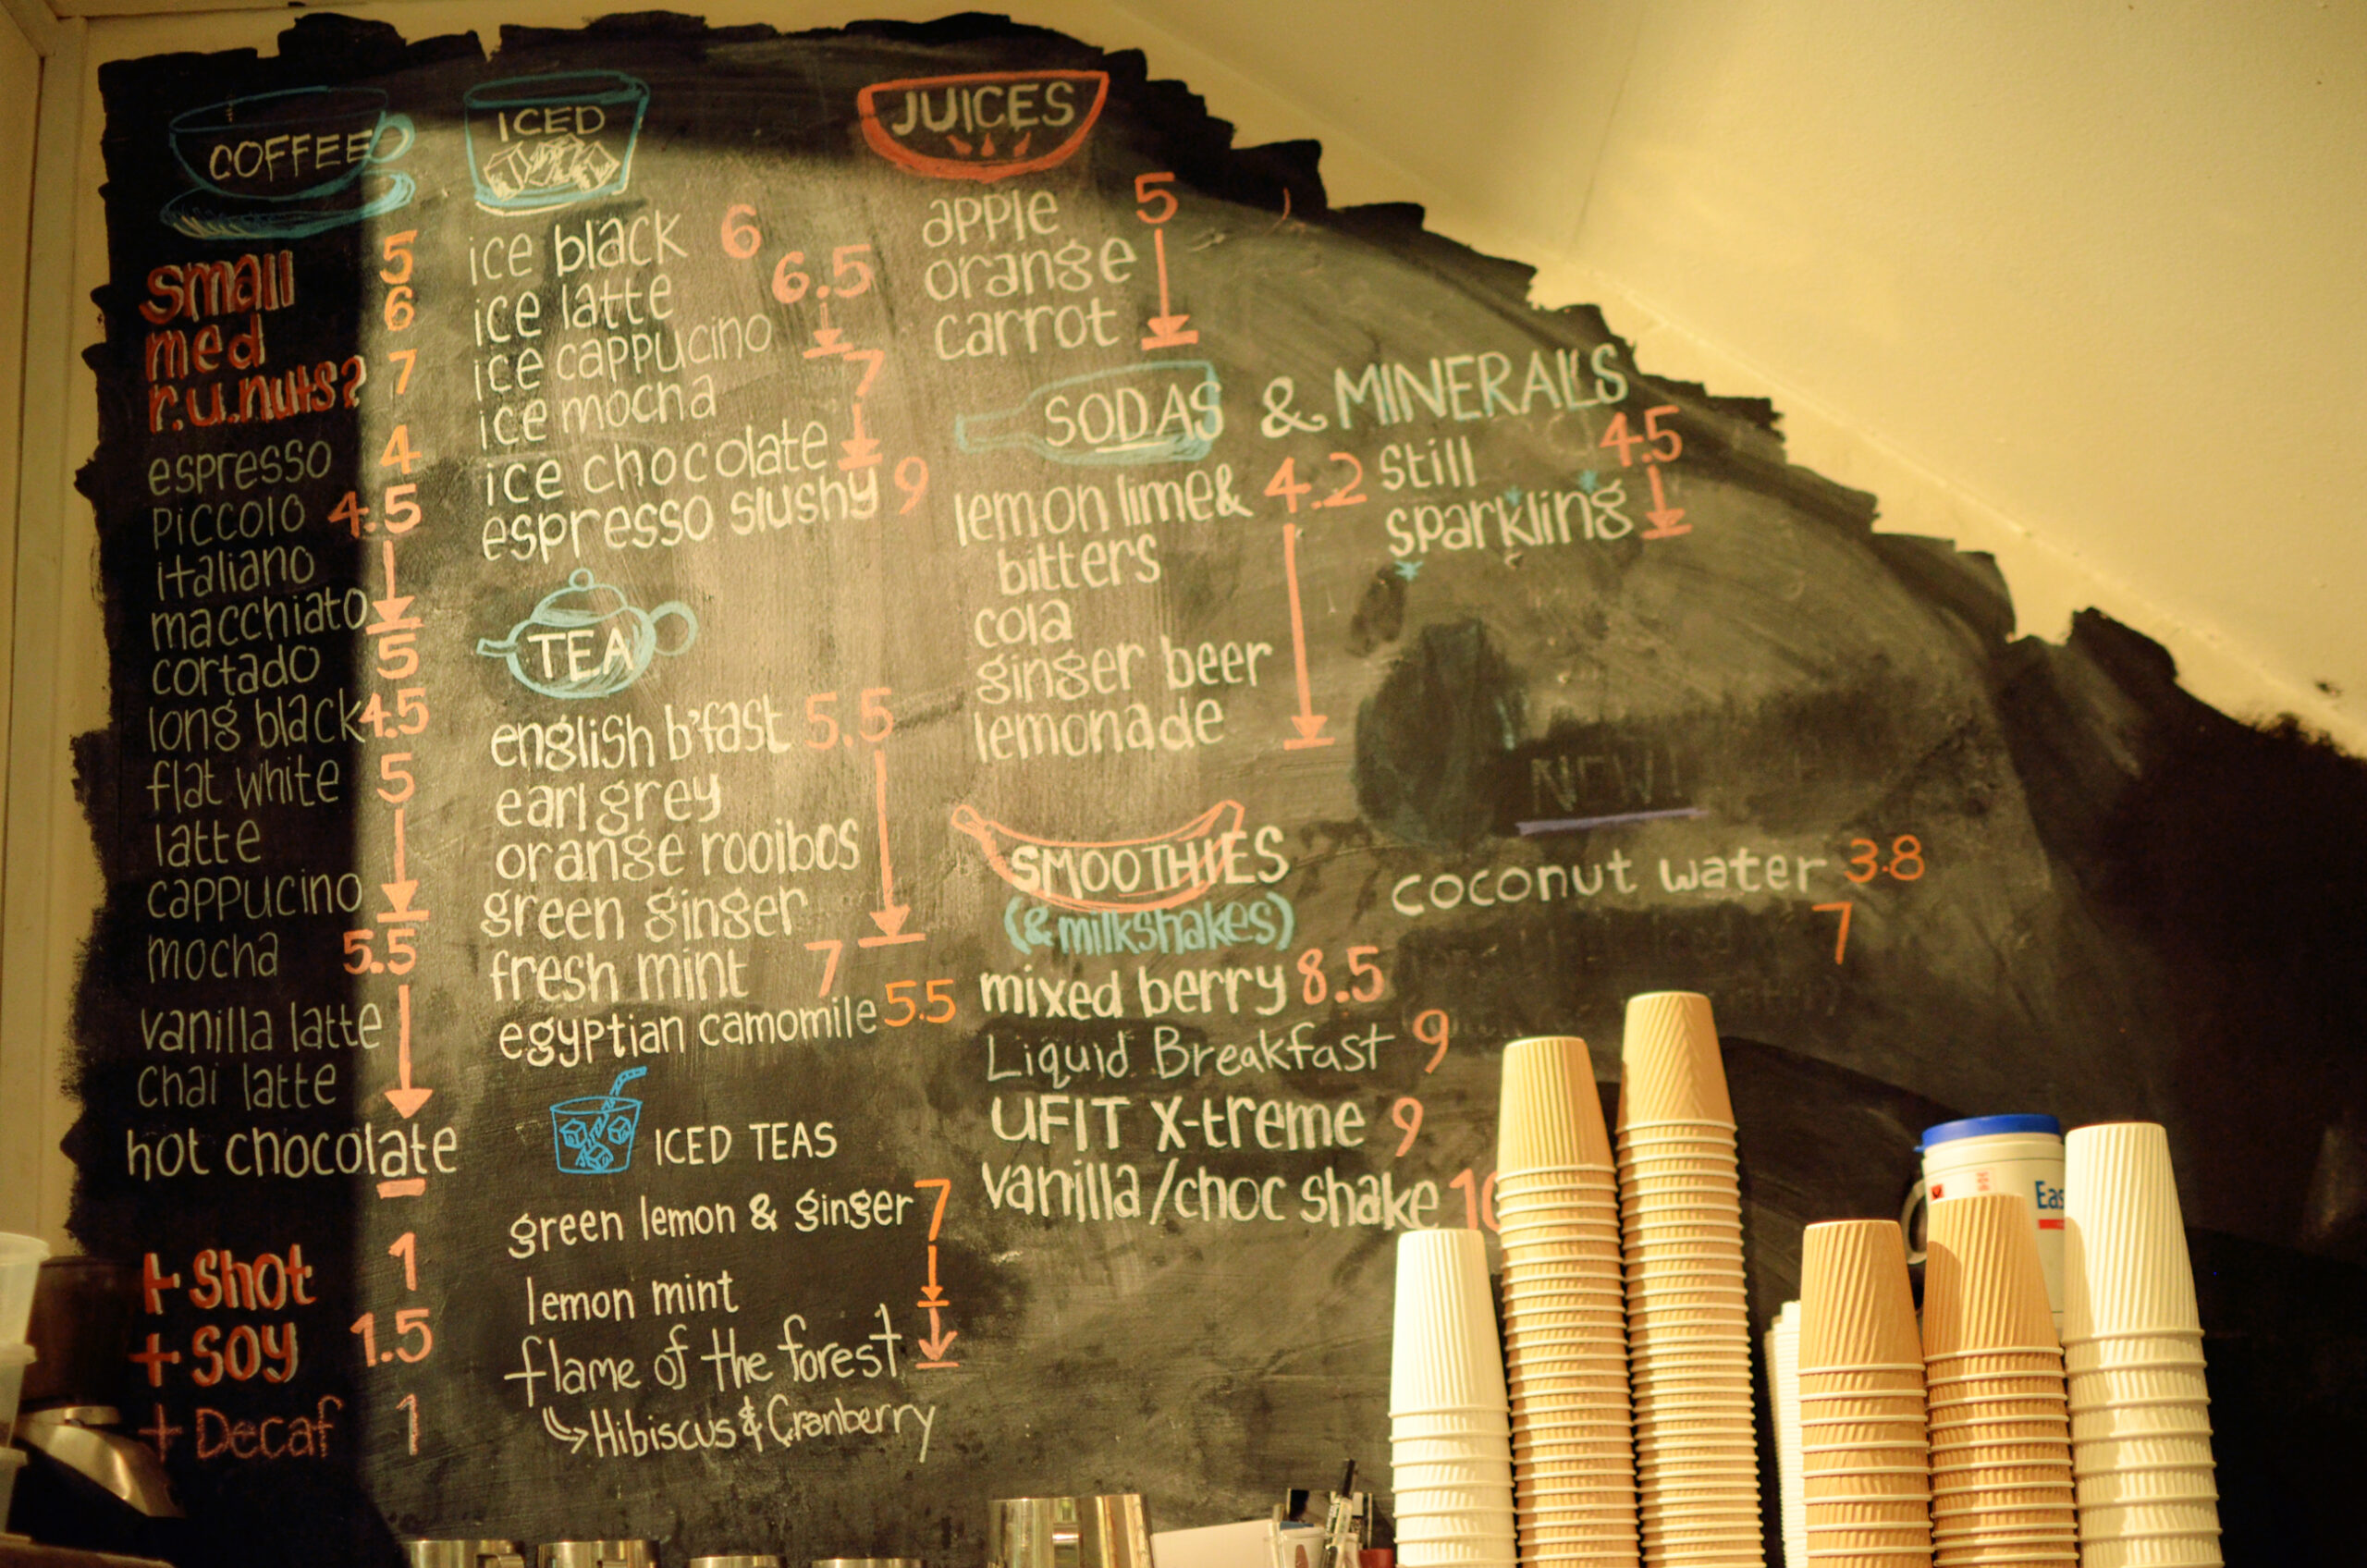 COFFEE
small 5
med 6
r.u.nuts? 7
espresso 4
piccolo 4.5
italiano
macchiato
cortado 5
long black 4.5
flat white 5
latte
cappucino
mocha 5.5
vanilla latte
chai latte
hot chocolate
+ shot 1
+ soy 1.5
+ Decaf 1
ICED
ice black 6
ice latte 6.5
ice cappucino
ice mocha 7
ice chocolate
espresso slushy 9
TEA
english b'fast 5.5
earl grey
orange rooibos
green ginger
fresh mint 7
egyptian camomile 5.5
ICED TEAS
green lemon & ginger 7
lemon mint
flame of the forest
Hibiscus & Cranberry
JUICES
apple 5
orange
carrot
SODAS & MINERALS
lemon lime & 4.2
bitters
cola
ginger beer
lemonade
still 4.5
sparkling
SMOOTHIES
(& milkshakes)
mixed berry 8.5
Liquid Breakfast 9
UFIT X-treme 9
vanilla/choc shake 10
NEW!
coconut water 3.8
7